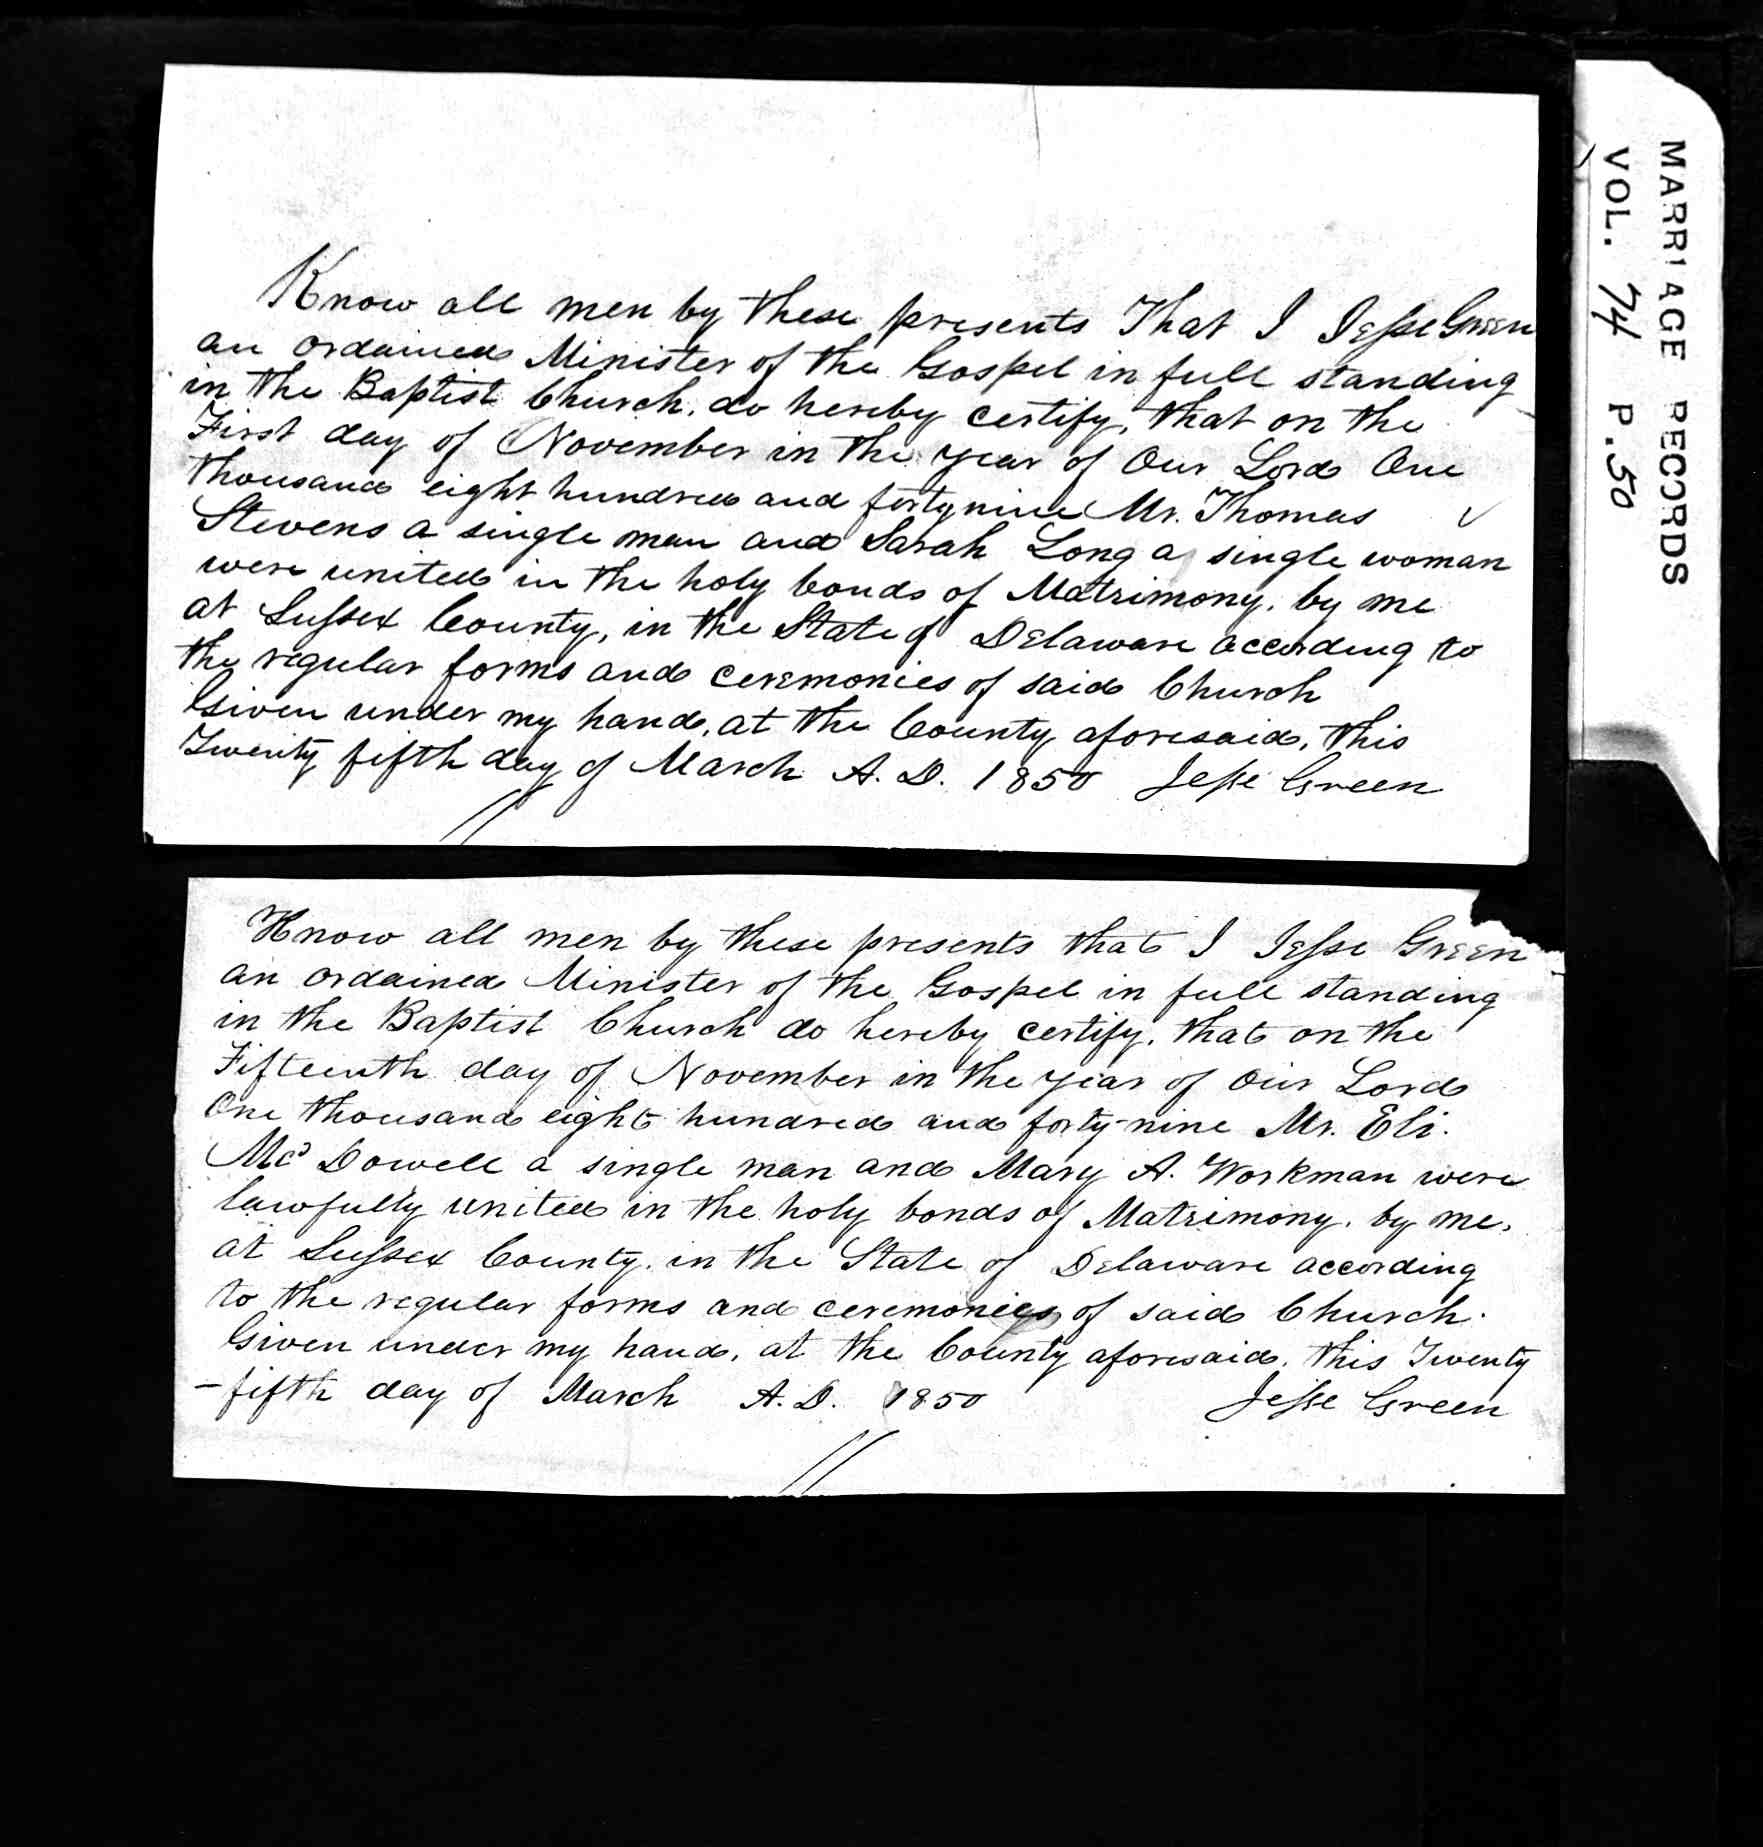 Know all men by these presents That I Jesse Green
an ordained Minister of the Gospel in full standing
in the Baptist Church, do hereby certify, that on the
First day of November in the year of Our Lord One
thousand eight hundred and forty nine Mr. Thomas
Stevens a single man and Sarah Long a single woman
were united in the holy bonds of Matrimony, by me
at Sussex County, in the State of Delaware according to
the regular forms and ceremonies of said Church
Given under my hand, at the County aforesaid, this
Twenty fifth day of March A. D. 1850 Jesse Green
Know all men by these presents that I Jesse Green
an ordained Minister of the Gospel in full standing
in the Baptist Church do hereby certify, that on the
Fifteenth day of November in the year of Our Lord
One thousand eight hundred and forty-nine Mr. Eli.
McDowell a single man and Mary A. Workman were
lawfully united in the holy bonds of Matrimony, by me,
at Sussex County, in the State of Delaware according
to the regular forms and ceremonies of said Church.
Given under my hand, at the County aforesaid, this Twenty
-fifth day of March A. D. 1850 Jesse Green
MARRIAGE RECORDS
VOL. 74 P. 50